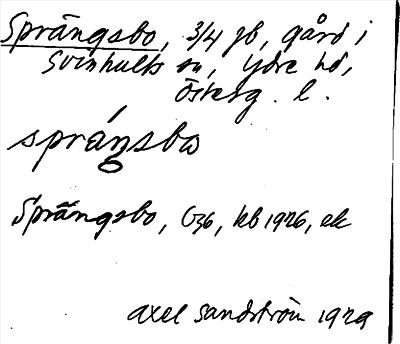 Sprängsbo, 3/4 gb, gård i
Svinhults sn, Ydre hd,
Österg. l.
spráŋsbω
Sprängsbo, G36, kb 1926, ek
Axel Sandström 1929